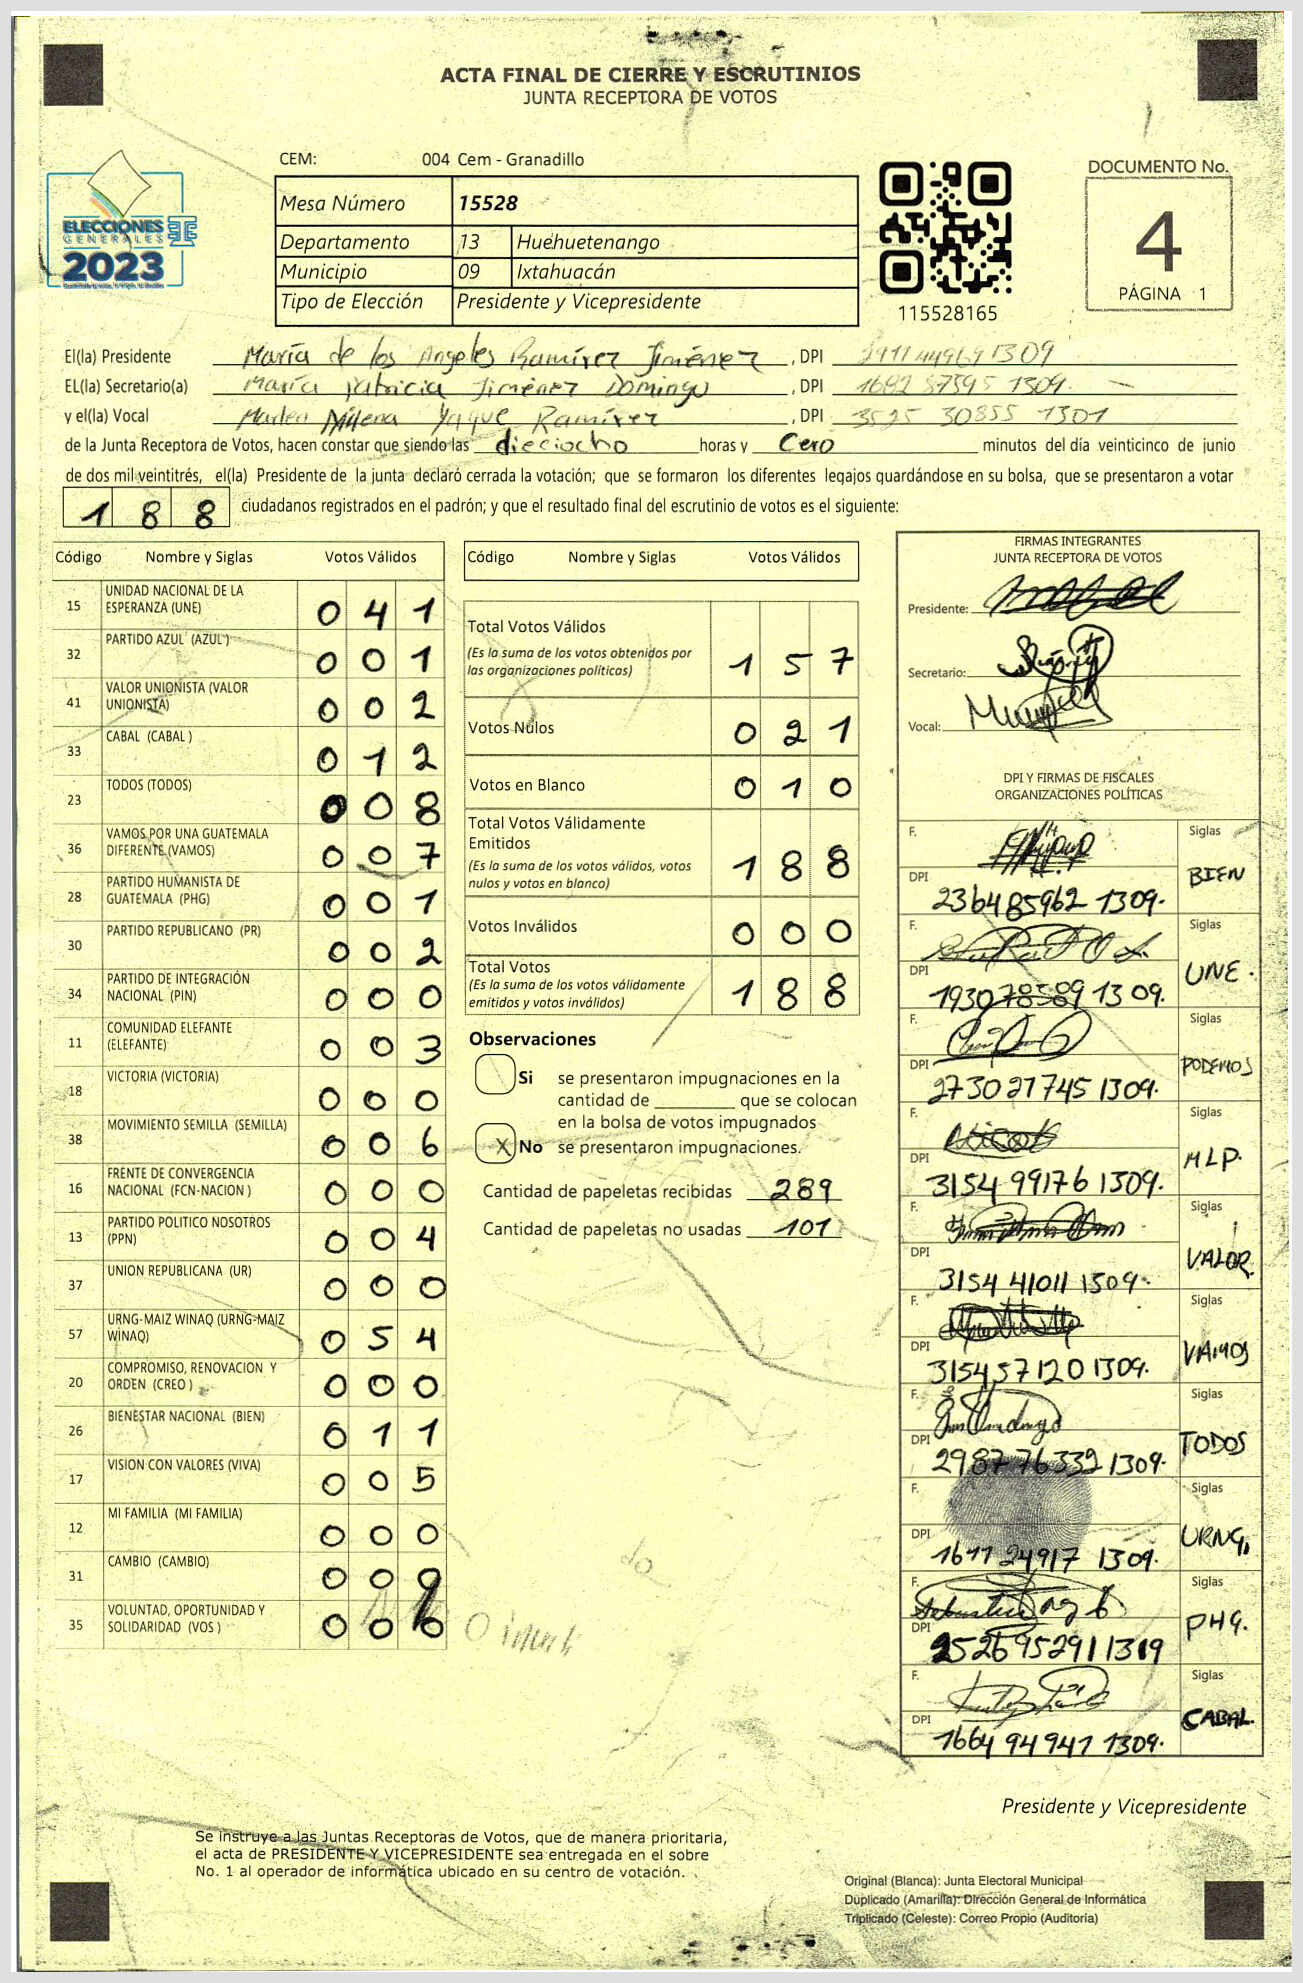 ACTA FINAL DE CIERRE Y ESCRUTINIOS
JUNTA RECEPTORA DE VOTOS
CEM: 004 Cem - Granadillo
ELECCIONES
GENERALES
2023
Mesa Número 15528
Departamento 13 Huehuetenango
Municipio 09 Ixtahuacán
Tipo de Elección Presidente y Vicepresidente
115528165
DOCUMENTO No.
4
PÁGINA 1
El(la) Presidente María de los Angeles Ramírez Jiménez , DPI 1309
EL(la) Secretario(a) María Patricia Jiménez Domingo , DPI 1682 87595 1309.
y el(la) Vocal Milena Yaque Ramírez , DPI 3525 30855 1301
de la Junta Receptora de Votos, hacen constar que siendo las dieciocho horas y Cero minutos del día veinticinco de junio
de dos mil veintitrés, el(la) Presidente de la junta declaró cerrada la votación; que se formaron los diferentes legajos guardándose en su bolsa, que se presentaron a votar
188 ciudadanos registrados en el padrón; y que el resultado final del escrutinio de votos es el siguiente:
Código Nombre y Siglas Votos Válidos
15 UNIDAD NACIONAL DE LA ESPERANZA (UNE) 041
32 PARTIDO AZUL (AZUL) 001
41 VALOR UNIONISTA (VALOR UNIONISTA) 002
33 CABAL (CABAL ) 012
23 TODOS (TODOS) 008
36 VAMOS POR UNA GUATEMALA DIFERENTE (VAMOS) 007
28 PARTIDO HUMANISTA DE GUATEMALA (PHG) 001
30 PARTIDO REPUBLICANO (PR) 002
34 PARTIDO DE INTEGRACIÓN NACIONAL (PIN) 000
11 COMUNIDAD ELEFANTE (ELEFANTE) 003
18 VICTORIA (VICTORIA) 000
38 MOVIMIENTO SEMILLA (SEMILLA) 006
16 FRENTE DE CONVERGENCIA NACIONAL (FCN-NACION ) 000
13 PARTIDO POLITICO NOSOTROS (PPN) 004
37 UNION REPUBLICANA (UR) 000
57 URNG-MAIZ WINAQ (URNG-MAIZ WINAQ) 054
20 COMPROMISO, RENOVACION Y ORDEN (CREO ) 000
26 BIENESTAR NACIONAL (BIEN) 011
17 VISION CON VALORES (VIVA) 005
12 MI FAMILIA (MI FAMILIA) 000
31 CAMBIO (CAMBIO) 000
35 VOLUNTAD, OPORTUNIDAD Y SOLIDARIDAD (VOS ) 000
Código Nombre y Siglas Votos Válidos
Total Votos Válidos 157
(Es la suma de los votos obtenidos por
las organizaciones políticas)
Votos Nulos 021
Votos en Blanco 010
Total Votos Válidamente
Emitidos 188
(Es la suma de los votos válidos, votos
nulos y votos en blanco)
Votos Inválidos 000
Total Votos 188
(Es la suma de los votos válidamente
emitidos y votos inválidos)
Observaciones
Si se presentaron impugnaciones en la
cantidad de ________ que se colocan
en la bolsa de votos impugnados
X No se presentaron impugnaciones.
Cantidad de papeletas recibidas 289
Cantidad de papeletas no usadas 101
FIRMAS INTEGRANTES
JUNTA RECEPTORA DE VOTOS
Presidente:
Secretario:
Vocal:
DPI Y FIRMAS DE FISCALES
ORGANIZACIONES POLÍTICAS
F. Siglas
DPI 2364 85962 1309. BIEN
F. Siglas
DPI 1930 78589 1309. UNE.
F. Siglas
DPI 2730 27745 1309. PODEMOS
F. Siglas
DPI 3154 99176 1309. MLP.
F. Siglas
DPI 3154 41011 1309. VALOR
F. Siglas
DPI 3154 57120 1309. VAMOS
F. Siglas
DPI 2987 76332 1309. TODOS
F. Siglas
DPI 1671 24917 1309. URNG,
F. Siglas
DPI 2526 95291 1319 PHG.
F. Siglas
DPI 1664 94941 1309. CABAL.
Presidente y Vicepresidente
Se instruye a las Juntas Receptoras de Votos, que de manera prioritaria,
el acta de PRESIDENTE Y VICEPRESIDENTE sea entregada en el sobre
No. 1 al operador de informática ubicado en su centro de votación.
Original (Blanca): Junta Electoral Municipal
Duplicado (Amarilla): Dirección General de Informática
Triplicado (Celeste): Correo Propio (Auditoría)